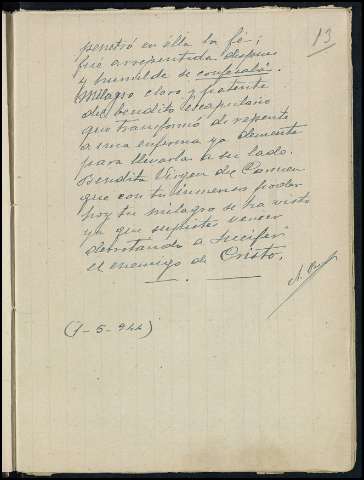 13
penetró en élla la fé;
fué arrepentida despues
y humilde se confesaba.
Milagro claro y patente
del bendito escapulario
que transformó de repente
a una enferma ya demente
para llevarla a su lado.
Bendita Virgen de Carmen
que con tu inmenso poder
hoy tu milagro se ha visto
ya que supistes vencer
derrotando a Lucifer
el enemigo de Cristo.
(1-5-944)